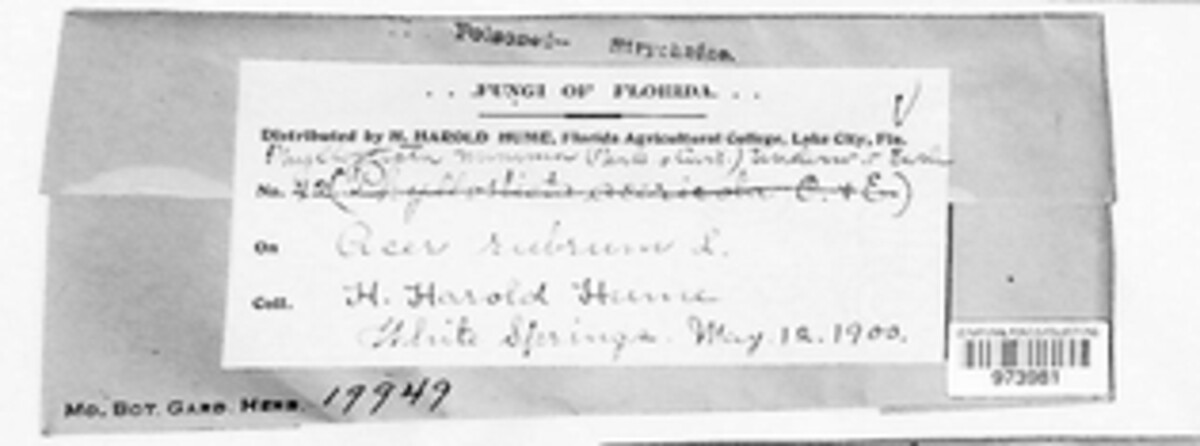 Poisoned — Strychnine.
FUNGI OF FLORIDA
Distributed by H. HAROLD HUME, Florida Agricultural College, Lake City, Fla.
Phyllosticta minima (Berk & Curt.) Underw & Earle
No. 42 (Phyllosticta acericola C. & E.)
On Acer rubrum L.
Coll. H. Harold Hume
White Springs. May 12. 1900.
973981
MO. BOT. GARD. HERB. 19949